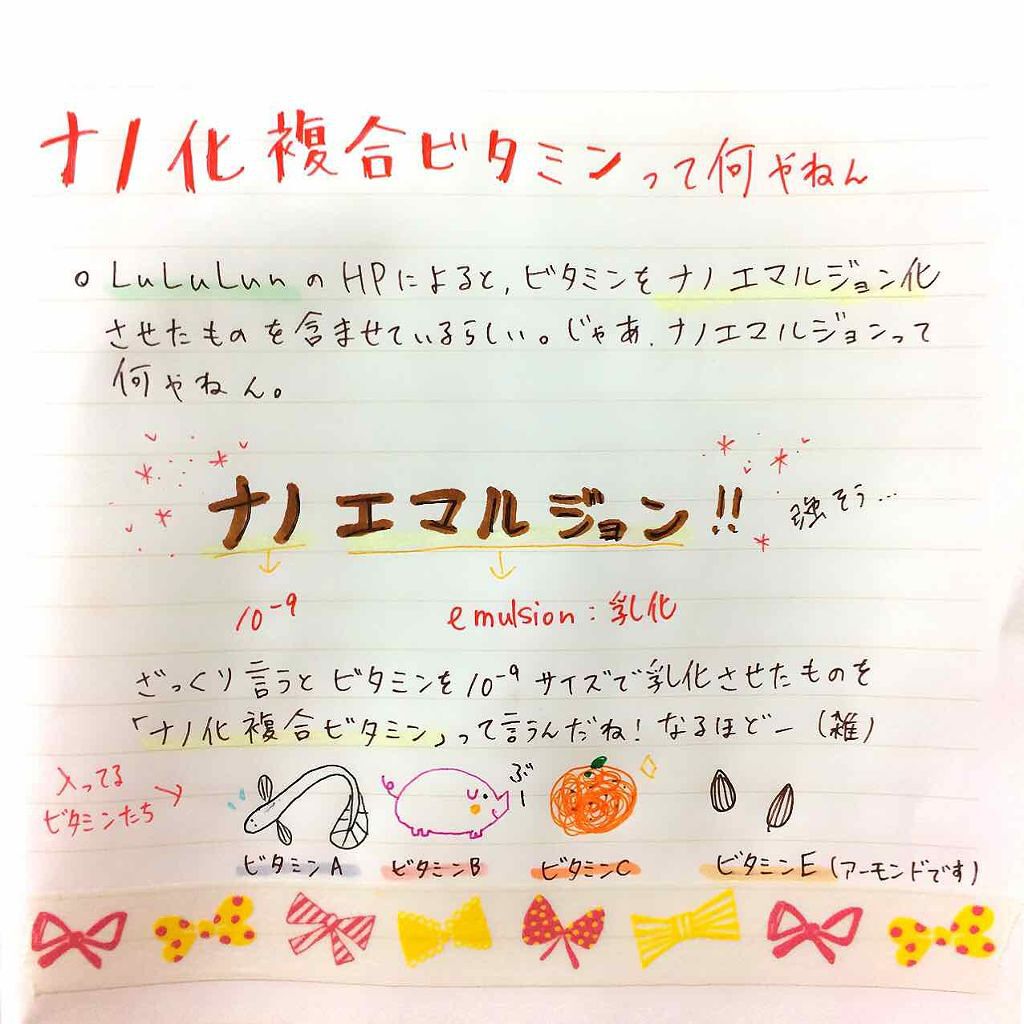 ナノ化複合ビタミンって何やねん
○ LuLuLunのHPによると,ビタミンをナノエマルジョン化
させたものを含ませているらしい。じゃあ.ナノエマルジョンって
何やねん。
ナノエマルジョン!!
強そう...
10⁻⁹
emulsion:乳化
ざっくり言うとビタミンを10⁻⁹サイズで乳化させたものを
「ナノ化複合ビタミン」って言うんだね!なるほどー(雑)
入ってる
ビタミンたち
ぶー
ビタミンA ビタミンB ビタミンC ビタミンE(アーモンドです)